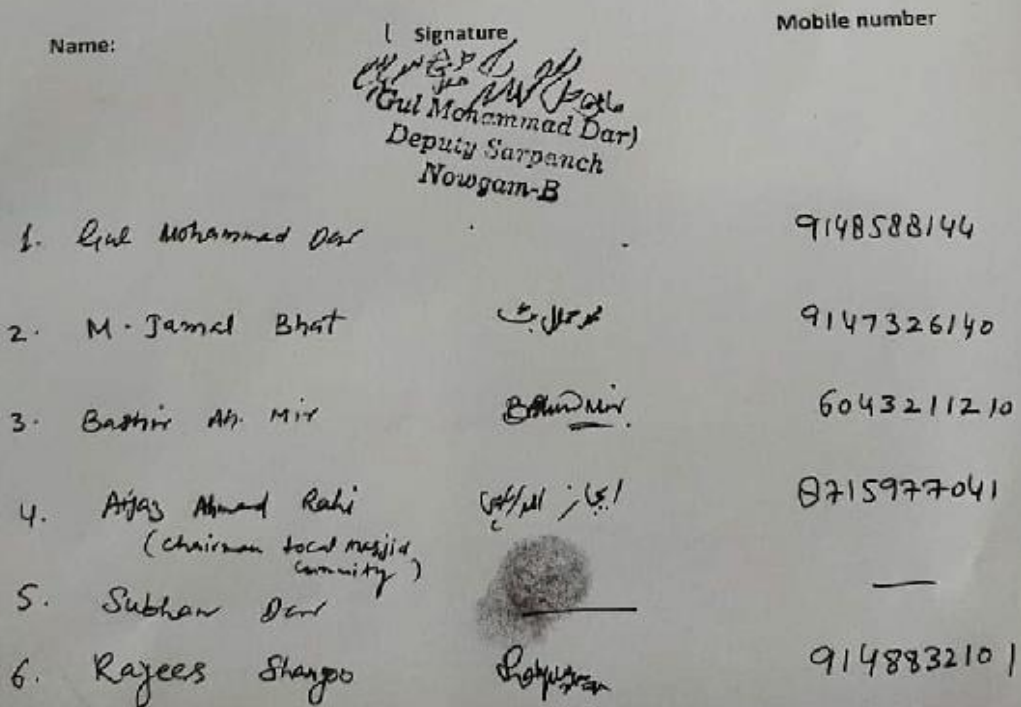 Name: Signature Mobile number
(Gul Mohammad Dar)
Deputy Sarpanch
Nowgam-B
1. Gul Mohammad Dar 9148588144
2. M. Jamal Bhat محمد جمال بٹ 9147326140
3. Bashir Ah. Mir 6043211210
4. Aijaz Ahmad Rahi اعجاز احمد راہی 8715977041
(Chairman local masjid
Commity)
5. Subhan Dar —
6. Rayees Shangoo 9148832101